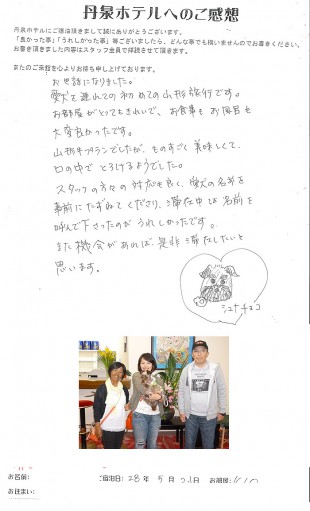 丹泉ホテルへのご感想
丹泉ホテルにご宿泊頂きまして誠にありがとうございます。
「良かった事」「うれしかった事」等ございましたら、どんな事でも構いませんのでお書きください。
お書き頂きました内容はスタッフ全員で拝読させて頂きます。
またのご来館を心よりお待ち申し上げております。
お世話になりました。
愛犬を連れての初めての山形旅行です。
お部屋がとってもきれいで、お食事もお風呂も
大変良かったです。
山形牛プランでしたが、ものすごく美味しくて、
口の中でとろけるようでした。
スタッフの方々の対応も良く、愛犬の名前を
事前にたずねてくださり、滞在中は名前を
呼んで下さったのがうれしかったです。
また機会があれば是非滞在したいと
思います。
チョコ
お名前:
ご宿泊日: 28年 5月 日 お部屋:
お住まい: